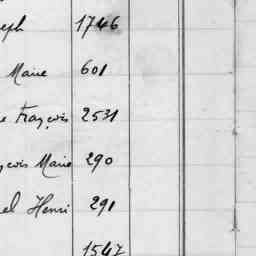 eph 1746
Marie 601
e François 2531
çois Marie 290
el Henri 291
1547